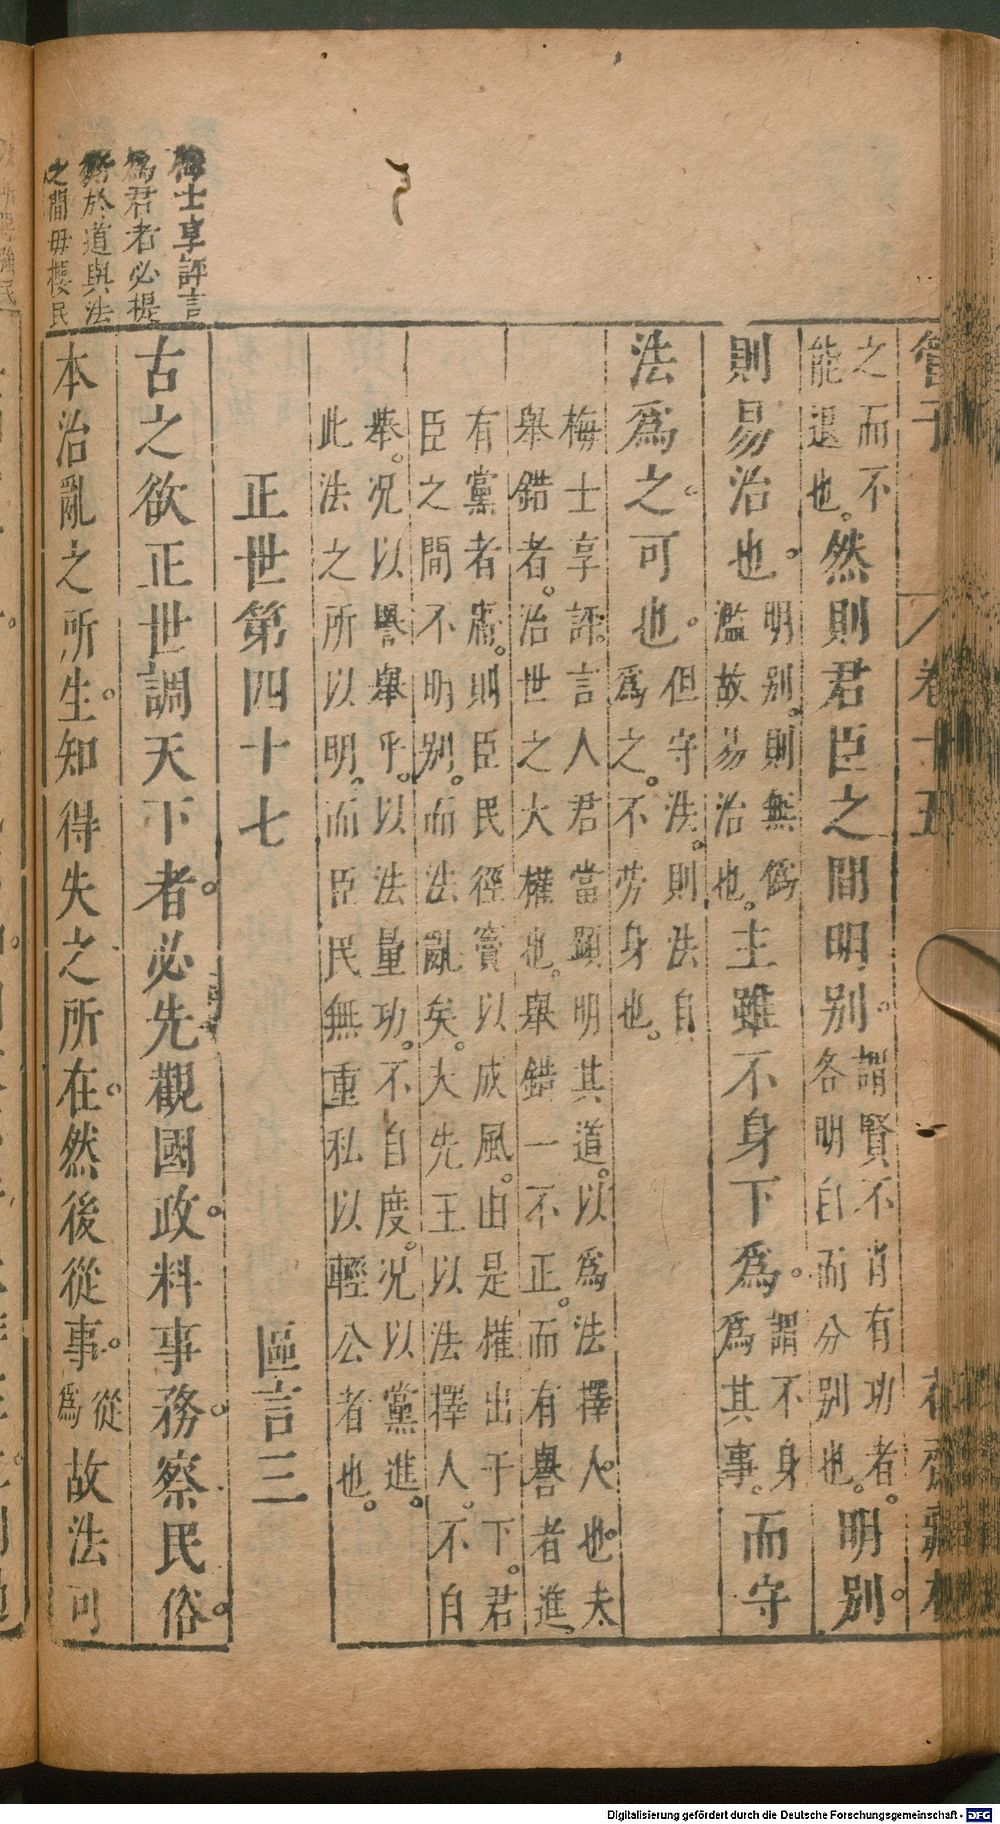 管子 卷十五 花齋藏板
之而不
能退也。然則君臣之間明別。謂賢不肖有功者。
各明白而分別也。明別。
則易治也。明別。則無僞
濫故易治也。主雖不身下爲。謂不身
爲其事。而守
法爲之。可也。但守法。則法自
爲之。不劳身也。
梅士享評言人君當顯明其道。以爲法擇人也。夫
舉錯者。治世之大權也。舉錯一不正。而有譽者進。
有黨者庸。則臣民徑竇以成風。由是權出于下。君
臣之間不明別。而法亂矣。大先王以法擇人。不自
舉。况以譽舉乎。以法量功。不自度。况以黨進。
此法之所以明。而臣民無重私以輕公者也。
正世第四十七 區言三
古之欲正世調天下者。必先觀國政。料事務。察民俗。
本治亂之所生。知得失之所在。然後從事。從
爲故法可
梅士享評言
爲君者必提
於道與法
之間毋擾民
Digitalisierung gefördert durch die Deutsche Forschungsgemeinschaft - DFG